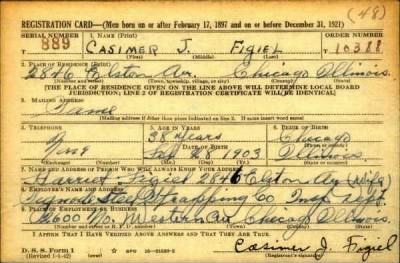 (48)
REGISTRATION CARD—(Men born on or after February 17, 1897 and on or before December 31, 1921)
SERIAL NUMBER 1. NAME (Print) ORDER NUMBER
889 CASIMER J. FIGIEL 10388
(First) (Middle) (Last)
2. PLACE OF RESIDENCE (Print)
2846 Elston Av. Chicago Illinois.
(Number and street) (Town, township, village, or city) (County) (State)
[THE PLACE OF RESIDENCE GIVEN ON THE LINE ABOVE WILL DETERMINE LOCAL BOARD
JURISDICTION; LINE 2 OF REGISTRATION CERTIFICATE WILL BE IDENTICAL]
3. MAILING ADDRESS
Same
[Mailing address if other than place indicated on line 2. If same insert word same]
4. TELEPHONE 5. AGE IN YEARS 6. PLACE OF BIRTH
38 years Chicago
None DATE OF BIRTH
Feb 28 1903 Illinois
(Exchange) (Number) (Mo.) (Day) (Yr.) (State or country)
7. NAME AND ADDRESS OF PERSON WHO WILL ALWAYS KNOW YOUR ADDRESS
Harriet Figiel 2846 Elston Av (wife)
8. EMPLOYER'S NAME AND ADDRESS
Steel Strapping Co Insp. Dept.
9. PLACE OF EMPLOYMENT OR BUSINESS
2600 No. Western Av Chicago Illinois.
(Number and street or R. F. D. number) (Town) (County) (State)
I AFFIRM THAT I HAVE VERIFIED ABOVE ANSWERS AND THAT THEY ARE TRUE.
D. S. S. Form 1
(Revised 1-1-42) (over)
Casimer J. Figiel
(Registrant's signature)